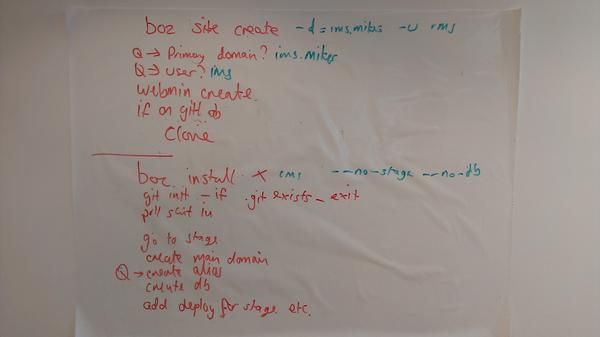 boz site create -d = ims.mikes -u ims
Q → Primary domain? ims.mikes
Q → User? ims
Webmin create
if on github
Clone
boz install x cms --no-stage --no-db
git init - if .git exists - exit
pull skit in
go to stage
create main domain
Q → create alias
create db
add deploy for stage etc.